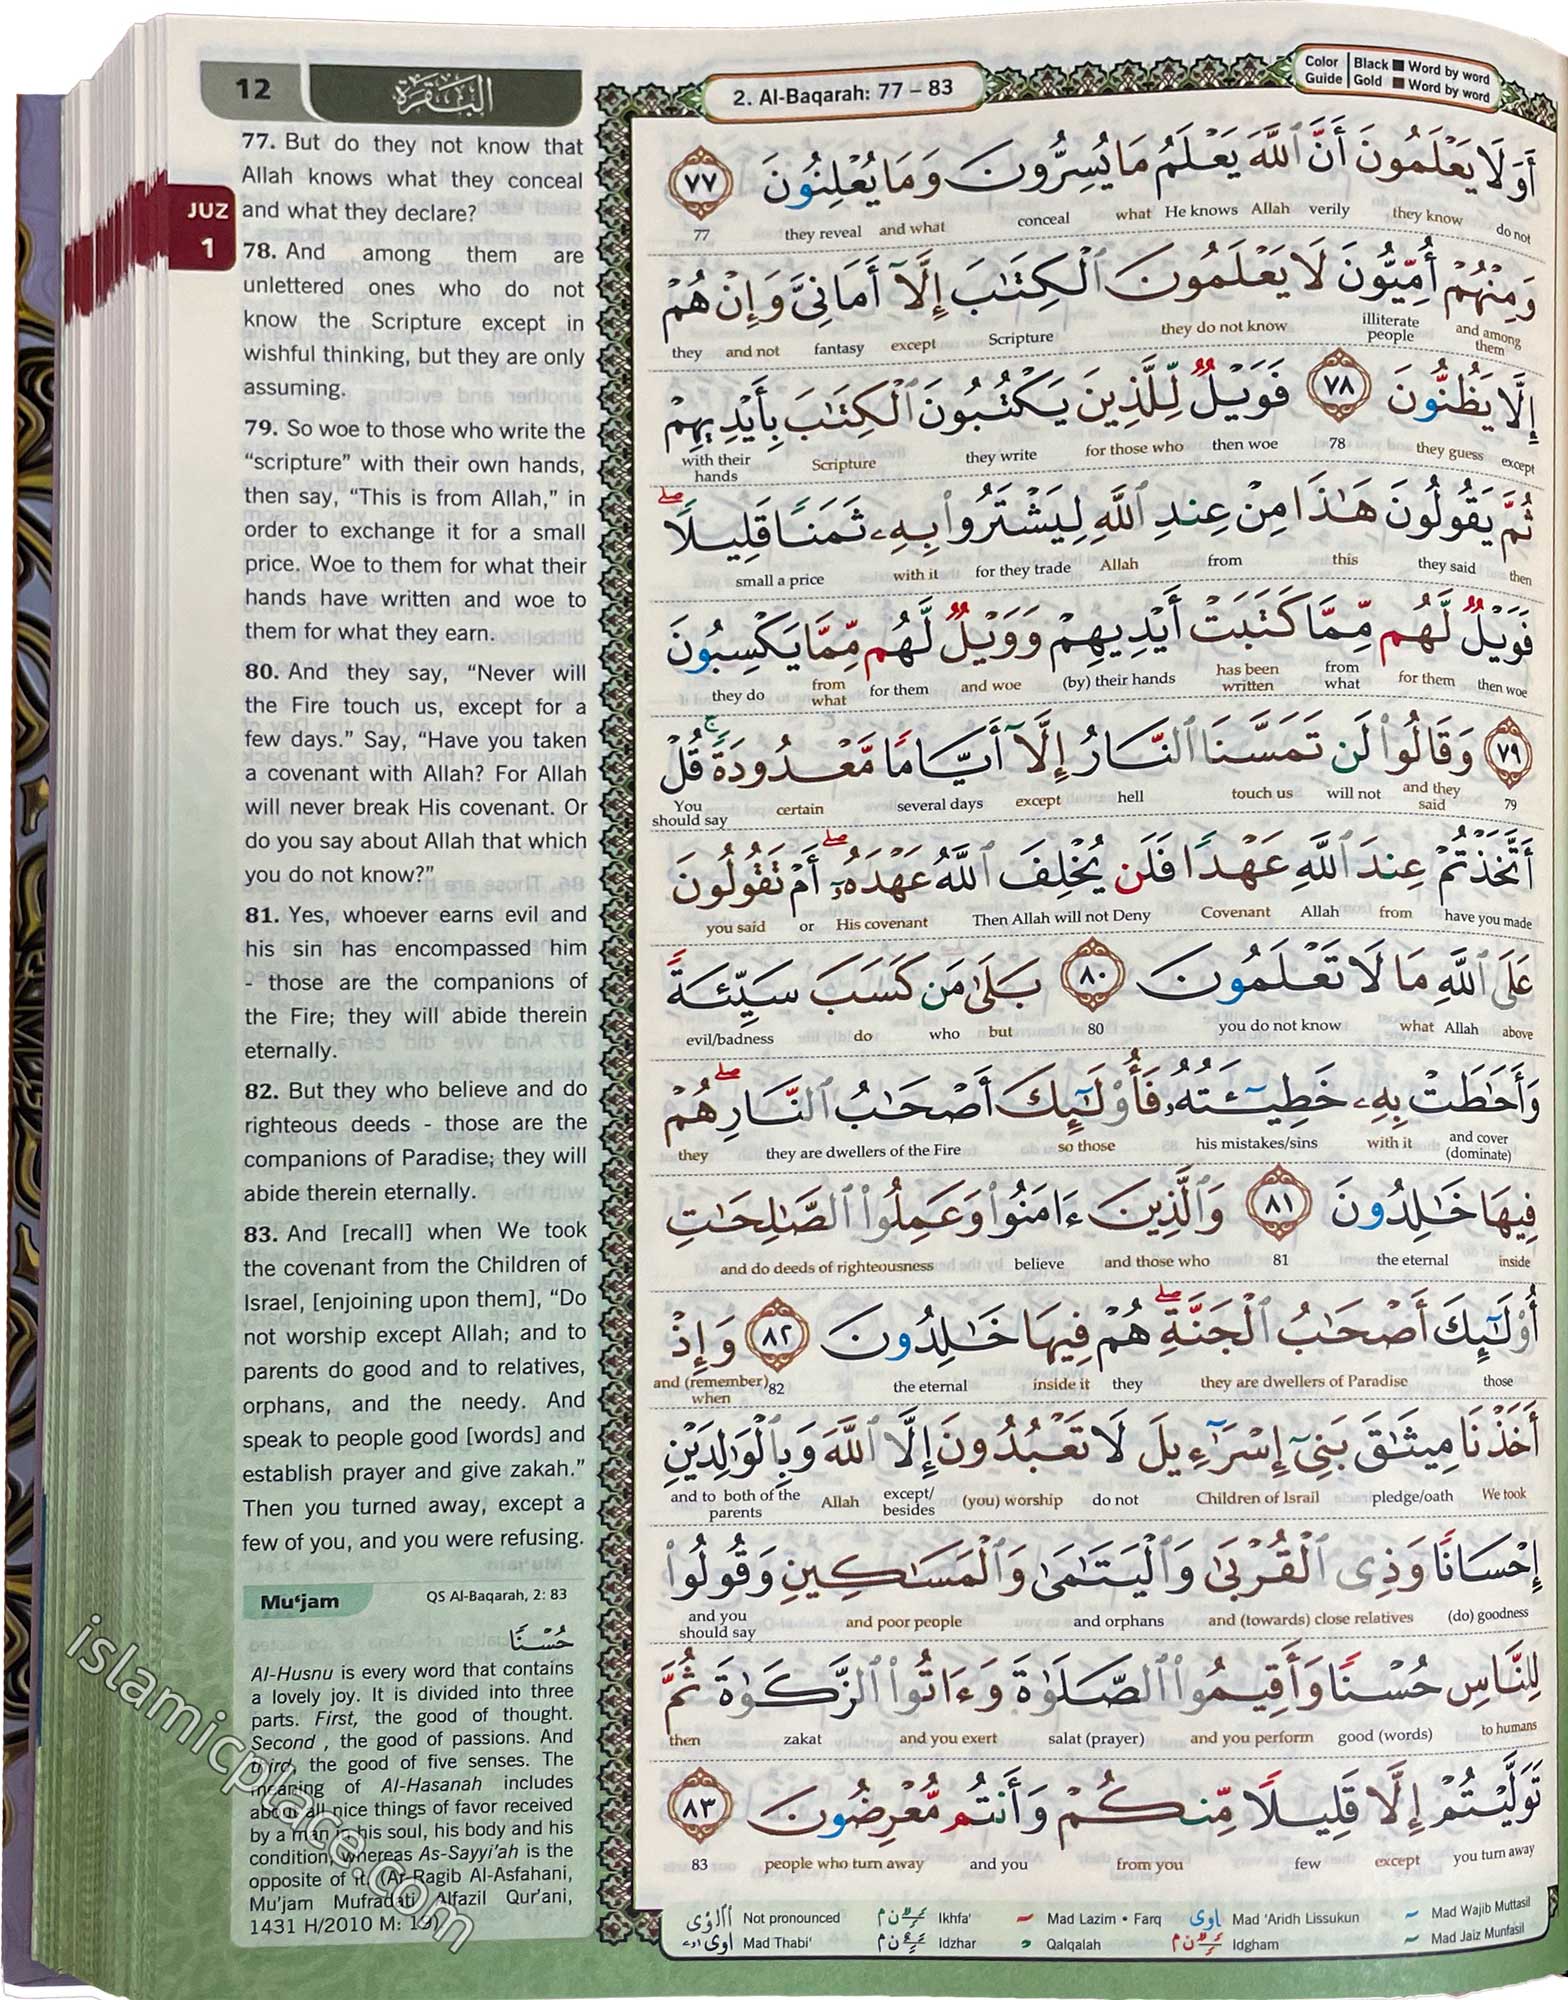 12
البقرة
2. Al-Baqarah: 77 – 83
Color Guide
Black Word by word
Gold Word by word
JUZ
1
77. But do they not know that
Allah knows what they conceal
and what they declare?
78. And among them are
unlettered ones who do not
know the Scripture except in
wishful thinking, but they are only
assuming.
79. So woe to those who write the
“scripture” with their own hands,
then say, “This is from Allah,” in
order to exchange it for a small
price. Woe to them for what their
hands have written and woe to
them for what they earn.
80. And they say, “Never will
the Fire touch us, except for a
few days.” Say, “Have you taken
a covenant with Allah? For Allah
will never break His covenant. Or
do you say about Allah that which
you do not know?”
81. Yes, whoever earns evil and
his sin has encompassed him
- those are the companions of
the Fire; they will abide therein
eternally.
82. But they who believe and do
righteous deeds - those are the
companions of Paradise; they will
abide therein eternally.
83. And [recall] when We took
the covenant from the Children of
Israel, [enjoining upon them], “Do
not worship except Allah; and to
parents do good and to relatives,
orphans, and the needy. And
speak to people good [words] and
establish prayer and give zakah.”
Then you turned away, except a
few of you, and you were refusing.
Mu‘jam
QS Al-Baqarah, 2: 83
حُسْنًا
Al-Husnu is every word that contains
a lovely joy. It is divided into three
parts. First, the good of thought.
Second , the good of passions. And
third, the good of five senses. The
meaning of Al-Hasanah includes
about all nice things of favor received
by a man in his soul, his body and his
condition, whereas As-Sayyi’ah is the
opposite of it. (Ar-Ragib Al-Asfahani,
Mu’jam Mufradati Alfazil Qur’ani,
1431 H/2010 M: 19)
أَوَلَا يَعْلَمُونَ أَنَّ ٱللَّهَ يَعْلَمُ مَا يُسِرُّونَ وَمَا يُعْلِنُونَ ٧٧
do not they know verily Allah He knows what conceal and what they reveal 77
وَمِنْهُمْ أُمِّيُّونَ لَا يَعْلَمُونَ ٱلْكِتَٰبَ إِلَّآ أَمَانِىَّ وَإِنْ هُمْ
and among them illiterate people they do not know Scripture except fantasy and not they
إِلَّا يَظُنُّونَ ٧٨ فَوَيْلٌ لِّلَّذِينَ يَكْتُبُونَ ٱلْكِتَٰبَ بِأَيْدِيهِمْ
except they guess 78 then woe for those who they write Scripture with their hands
ثُمَّ يَقُولُونَ هَٰذَا مِنْ عِندِ ٱللَّهِ لِيَشْتَرُوا۟ بِهِۦ ثَمَنًا قَلِيلًا ۖ
then they said this from Allah for they trade with it small a price
فَوَيْلٌ لَّهُم مِّمَّا كَتَبَتْ أَيْدِيهِمْ وَوَيْلٌ لَّهُم مِّمَّا يَكْسِبُونَ
then woe for them from what has been written (by) their hands and woe for them from what they do
٧٩ وَقَالُوا۟ لَن تَمَسَّنَا ٱلنَّارُ إِلَّآ أَيَّامًا مَّعْدُودَةً ۚ قُلْ
79 and they said will not touch us hell except several days certain You should say
أَتَّخَذْتُمْ عِندَ ٱللَّهِ عَهْدًا فَلَن يُخْلِفَ ٱللَّهُ عَهْدَهُۥٓ ۖ أَمْ تَقُولُونَ
have you made from Allah Covenant Then Allah will not Deny His covenant or you said
عَلَى ٱللَّهِ مَا لَا تَعْلَمُونَ ٨٠ بَلَىٰ مَن كَسَبَ سَيِّئَةً
above Allah what you do not know 80 but who do evil/badness
وَأَحَٰطَتْ بِهِۦ خَطِيٓـَٔتُهُۥ فَأُو۟لَٰٓئِكَ أَصْحَٰبُ ٱلنَّارِ ۖ هُمْ
and cover (dominate) with it his mistakes/sins so those they are dwellers of the Fire they
فِيهَا خَٰلِدُونَ ٨١ وَٱلَّذِينَ ءَامَنُوا۟ وَعَمِلُوا۟ ٱلصَّٰلِحَٰتِ
inside the eternal 81 and those who believe and do deeds of righteousness
أُو۟لَٰٓئِكَ أَصْحَٰبُ ٱلْجَنَّةِ ۖ هُمْ فِيهَا خَٰلِدُونَ ٨٢ وَإِذْ
those they are dwellers of Paradise they inside it the eternal 82 and (remember) when
أَخَذْنَا مِيثَٰقَ بَنِىٓ إِسْرَٰٓءِيلَ لَا تَعْبُدُونَ إِلَّا ٱللَّهَ وَبِٱلْوَٰلِدَيْنِ
We took pledge/oath Children of Israil do not (you) worship except/ besides Allah and to both of the parents
إِحْسَانًا وَذِى ٱلْقُرْبَىٰ وَٱلْيَتَٰمَىٰ وَٱلْمَسَٰكِينِ وَقُولُوا۟
(do) goodness and (towards) close relatives and orphans and poor people and you should say
لِلنَّاسِ حُسْنًا وَأَقِيمُوا۟ ٱلصَّلَوٰةَ وَءَاتُوا۟ ٱلزَّكَوٰةَ ثُمَّ
to humans good (words) and you perform salat (prayer) and you exert zakat then
تَوَلَّيْتُمْ إِلَّا قَلِيلًا مِّنكُمْ وَأَنتُم مُّعْرِضُونَ ٨٣
you turn away except few from you and you people who turn away 83
Not pronounced Ikhfa' Mad Lazim • Farq Mad 'Aridh Lissukun Mad Wajib Muttasil
Mad Thabi' Idzhar Qalqalah Idgham Mad Jaiz Munfasil
islamicplace.com